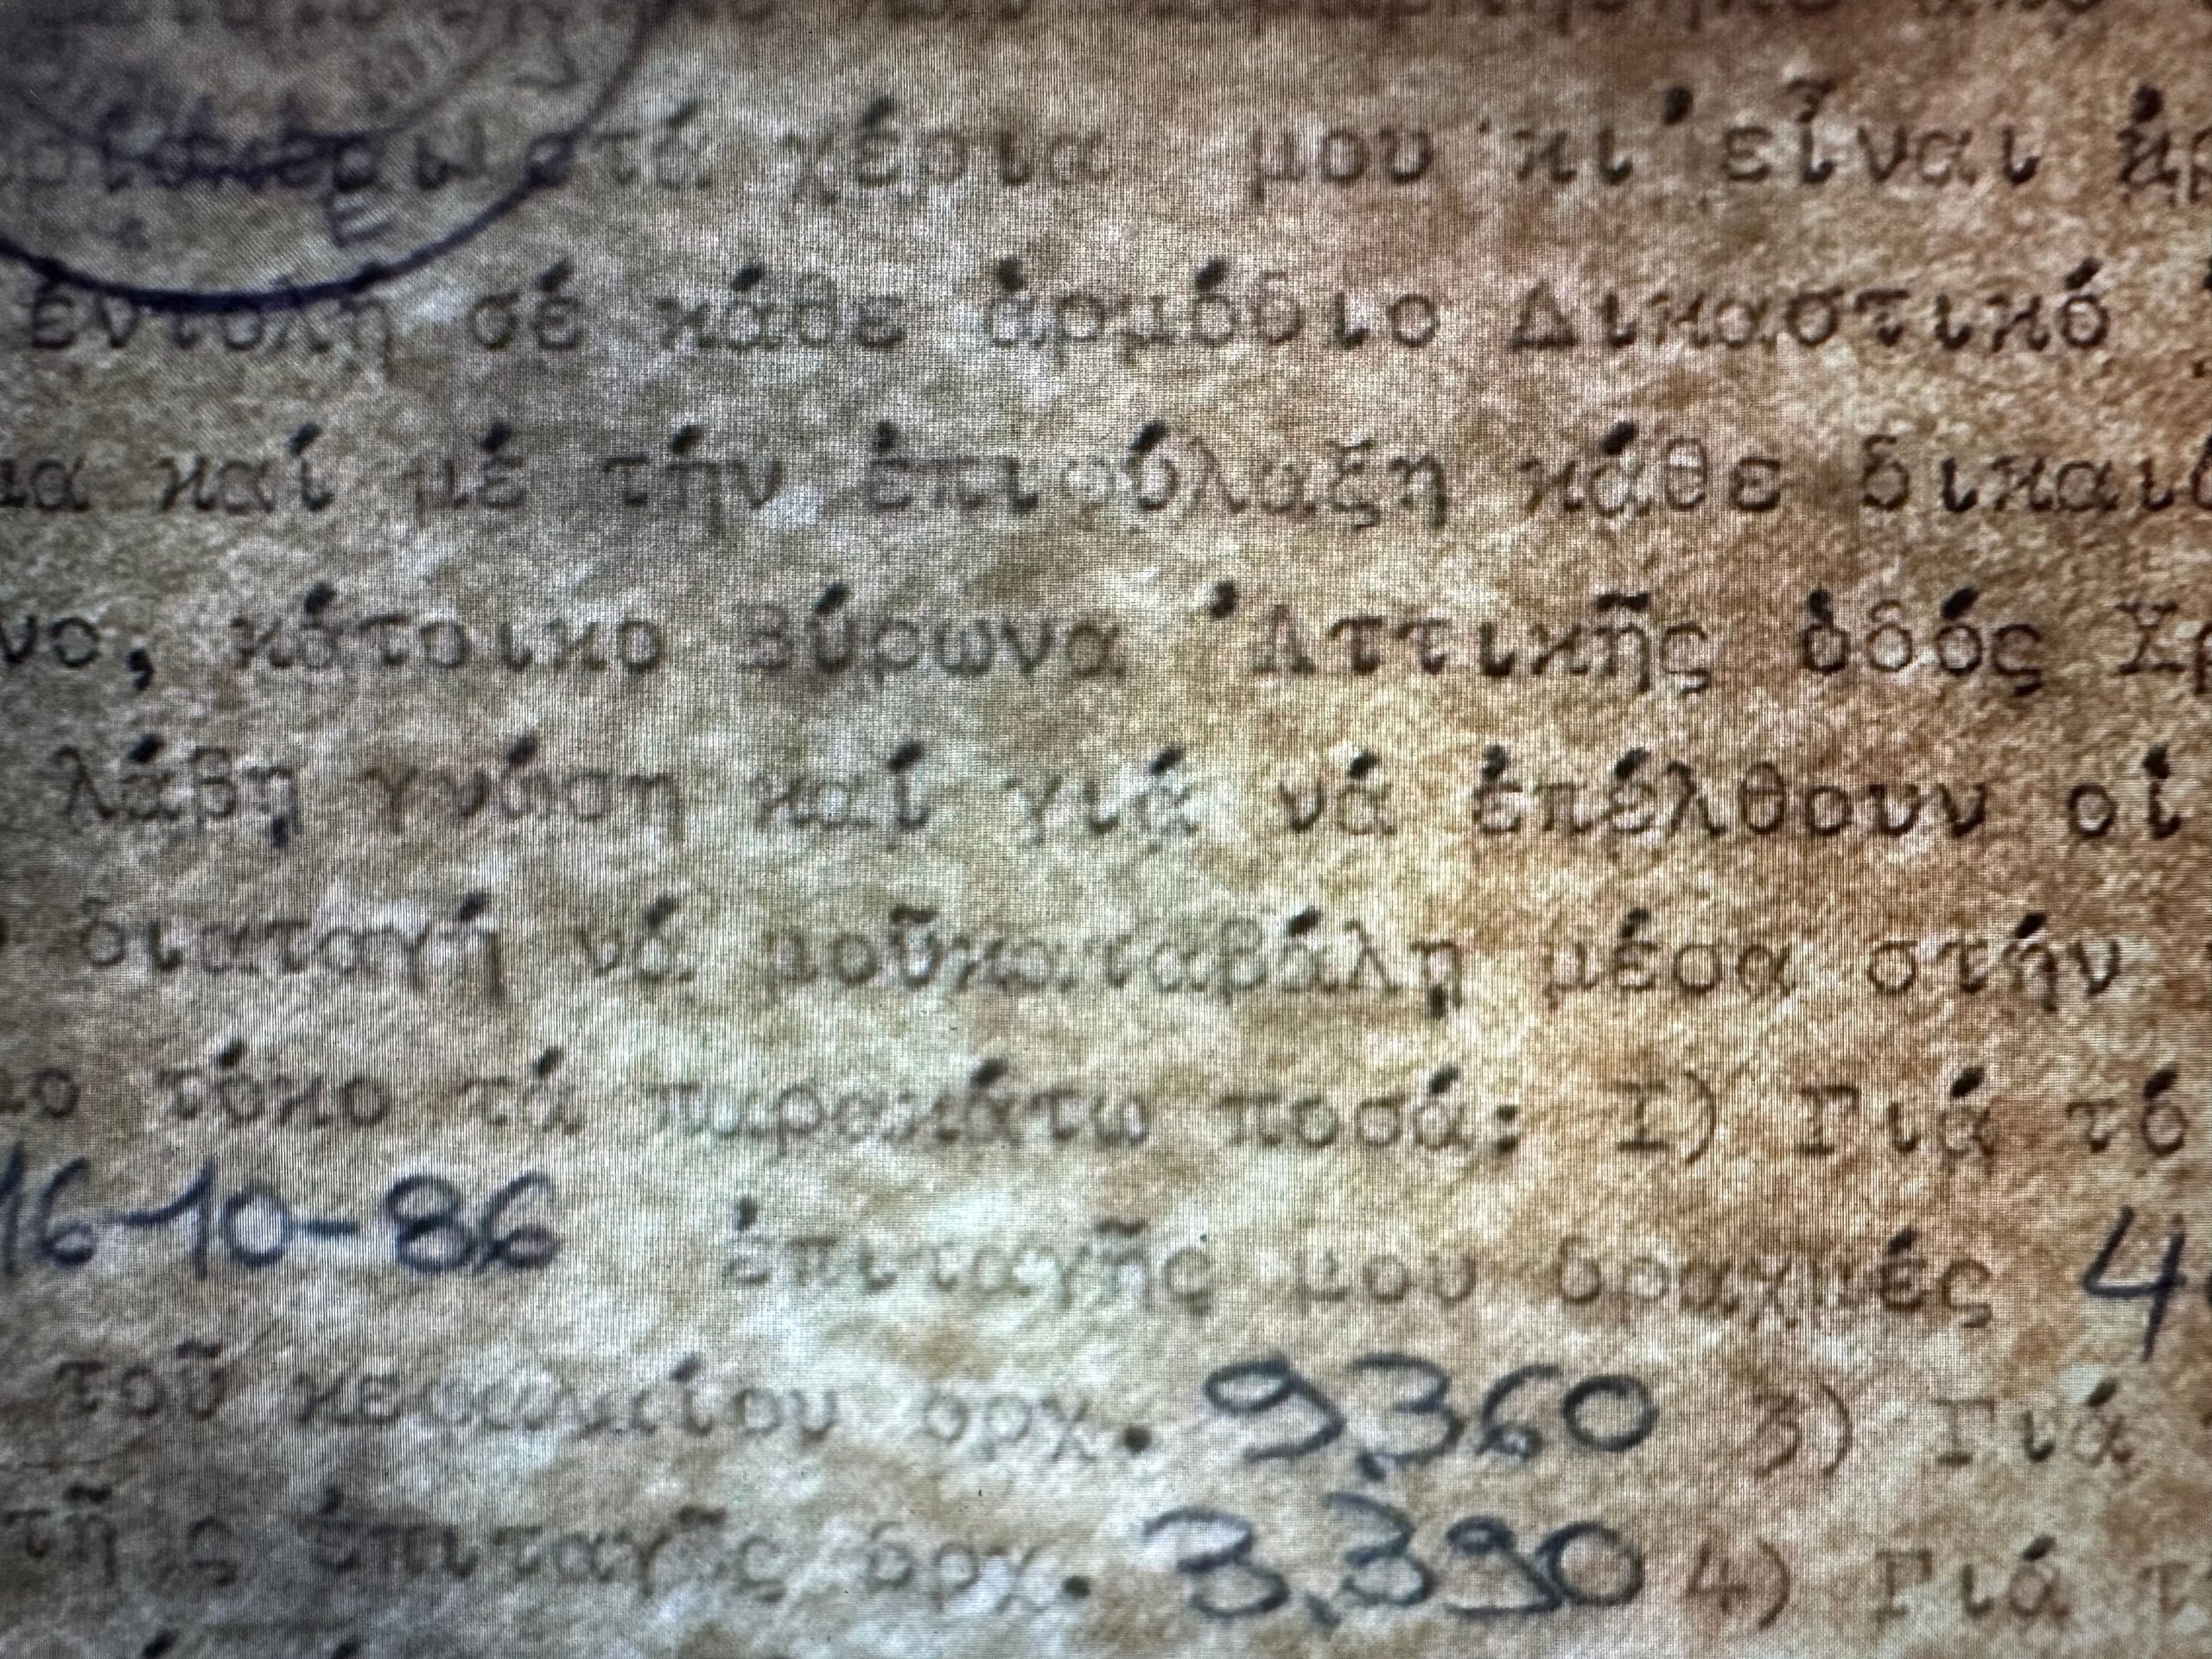 στά χέρια μου κι' εἶναι
ἐντολή σέ κάθε ἁρμόδιο Δικαστικό
μα καί μέ τήν ἐπιφύλαξη κάθε δικαιώ
νο, κάτοικο Βύρωνα Ἀττικῆς ὁδός Χρ
λάβη γνώση καί γιά νά ἐπέλθουν οἱ
διαταγή νά μοῦκαταβάλη μέσα στήν
μο τόκο τά παρακάτω ποσά: I) Γιά τό
16-10-86 ἐπιταγῆς μου δραχμές 4
τοῦ κεφαλαίου δρχ. 9.360 3) Γιά
τῆς ἐπιταγῆς δρχ. 3.390 4) Γιά τ